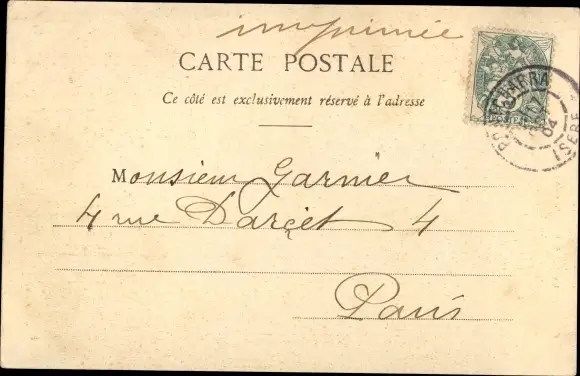 imprimée
CARTE POSTALE
Ce côté est exclusivement réservé à l'adresse
Monsieur Garnier
4 rue Darçet 4
Paris
ISERE
04